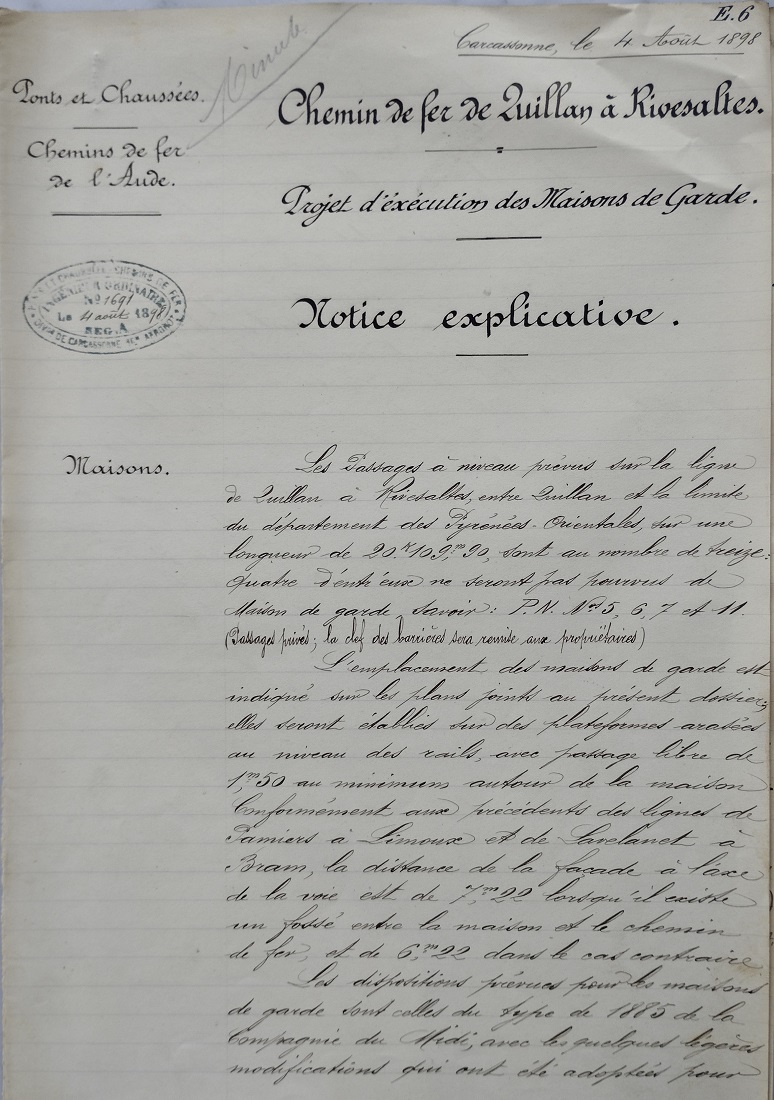 E.6
Carcassonne, le 4 Août 1898
Minute
Ponts et Chaussées.
Chemins de fer
de l'Aude.
Chemin de fer de Quillan à Rivesaltes.
Projet d'éxécution des Maisons de Garde.
INGÉNIEUR ORDINAIRE
No 1691
Le 4 août 1898
REG. A
Notice explicative.
Maisons.
Les Passages à niveau prévus sur la ligne
de Quillan à Rivesaltes, entre Quillan et la limite
du département des Pyrénées-Orientales, sur une
longueur de 20.k109,m90, sont au nombre de treize:
quatre d'entr'eux ne seront pas pourvus de
Maison de garde, savoir: P.N. Nos 5, 6, 7 et 11.
(Passages privés; la clef des barrières sera remise aux propriétaires)
L'emplacement des maisons de garde est
indiqué sur les plans joints au présent dossier;
elles seront établies sur des plateformes arasées
au niveau des rails, avec passage libre de
1,m50 au minimum autour de la maison
Conformément aux précédents des lignes de
Pamiers à Limoux et de Lavelanet à
Bram, la distance de la façade à l'axe
de la voie est de 7,m22 lorsqu'il existe
un fossé entre la maison et le chemin
de fer, et de 6,m22 dans le cas contraire
Les dispositions prévues pour les maisons
de garde sont celles du type de 1885 de la
Compagnie du Midi, avec les quelques légères
modifications qui ont été adoptées pour